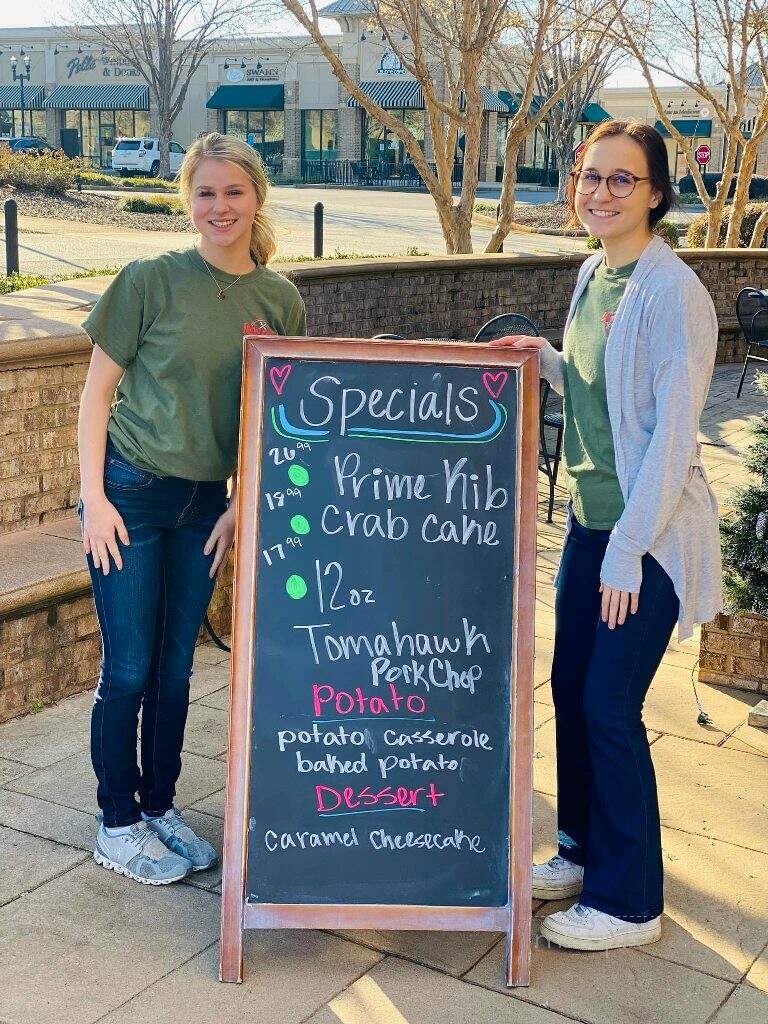 SWANK
STOP
Specials
26⁹⁹ Prime Rib
18⁹⁹ Crab cake
17⁹⁹ 12oz
Tomahawk
Pork Chop
Potato
potato casserole
baked potato
Dessert
caramel cheesecake